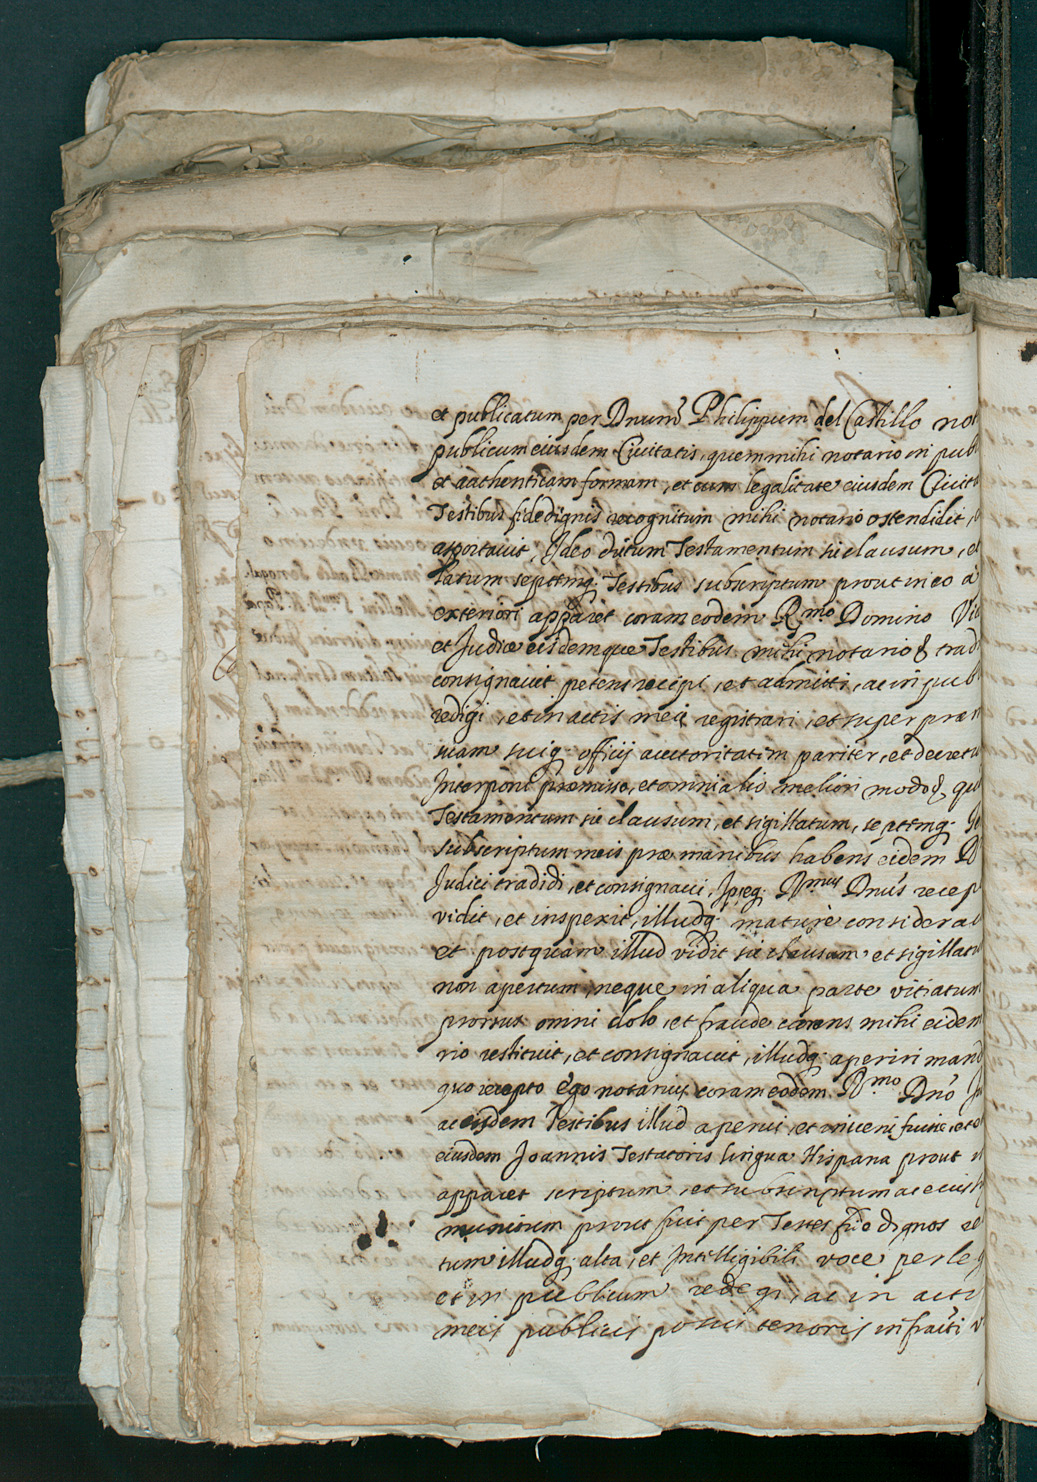 et publicatum per Dnum Philippum del Castillo not
publicum eiusdem Ciuitatis, quem mihi notario in pub
et authenticam formam, et cum legalitate eiusdem Ciuit
Testibus fide dignis recognitum mihi notario ostendidit,
asportauit, Ideo dictum Testamentum sic clausum, et
latum septemq; Testibus subscriptum prout in eo a
exteriori apparet coram eodem Rmo Domino Vic
et Judice eisdemque Testibus mihi notario & trad
consignauit petens recipi, et admitti, ac in pub
redigi, et in actis meis registrari, et super præm
suam suiq; officij auctoritatem pariter, et decretu
Interponi præmisso, et omni alio meliori modo &, quo
Testamentum sic clausum, et sigillatum, septemq; Te
subscriptum meis præ manibus habens eidem D
Judici tradidi, et consignaui, Ipseq; Rmus Dnus recep
vidit, et inspexit, illudq; maturè considerau
et postquam illud vidit sic clausum et sigillatu
non apertum, neque in aliqua parte vitiatum
prorsus omni dolo, et fraude carens mihi eidem
rio restituit, et consignauit, illudq; aperiri mand
quo recepto ego notarius coram eodem Rmo Dno
ac eisdem Testibus illud aperui, et inueni fuisse, et e
eiusdem Joannis Testatoris lingua Hispana prout i
apparet scriptum, et subscriptum ac eius
munitum prout fuit per Testes fide dignos re
tum illudq; alta, et Intelligibili voce perle
et in publicum redegi, ac in acti
meis publicis posui tenoris infracti v